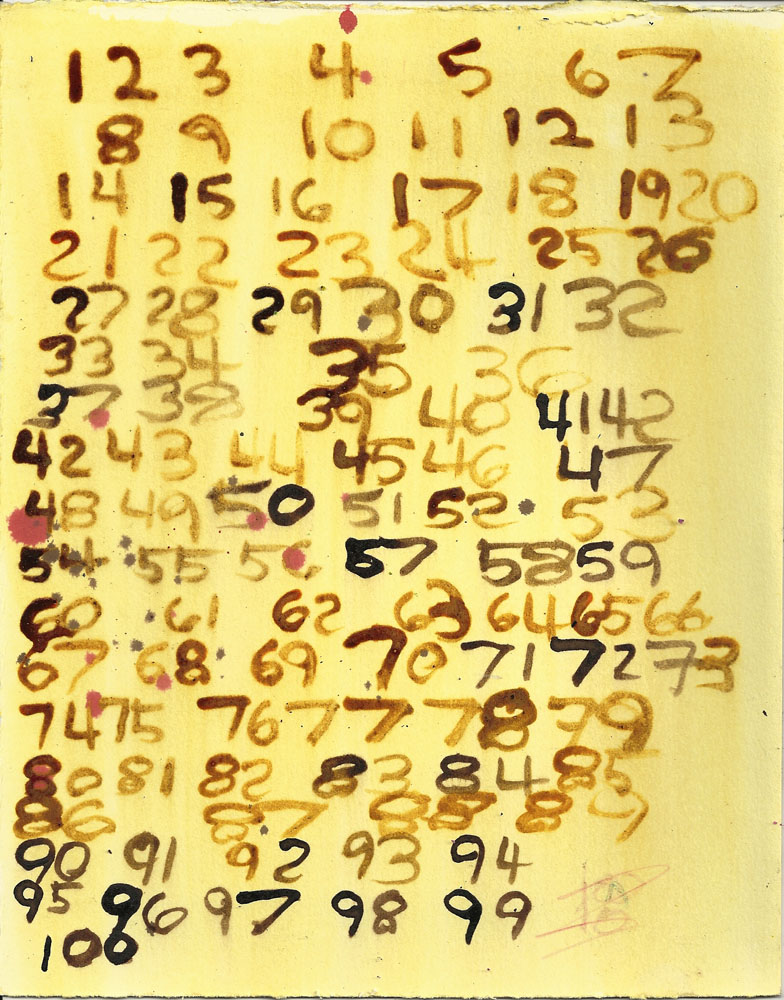 1 2 3 4 5 6 7
8 9 10 11 12 13
14 15 16 17 18 19 20
21 22 23 24 25 26
27 28 29 30 31 32
33 34 35 36
37 38 39 40 41 42
42 43 44 45 46 47
48 49 50 51 52 53
54 55 56 57 58 59
60 61 62 63 64 65 66
67 68 69 70 71 72 73
74 75 76 77 78 79
80 81 82 83 84 85
86 87 88 89
90 91 92 93 94
95 96 97 98 99
100